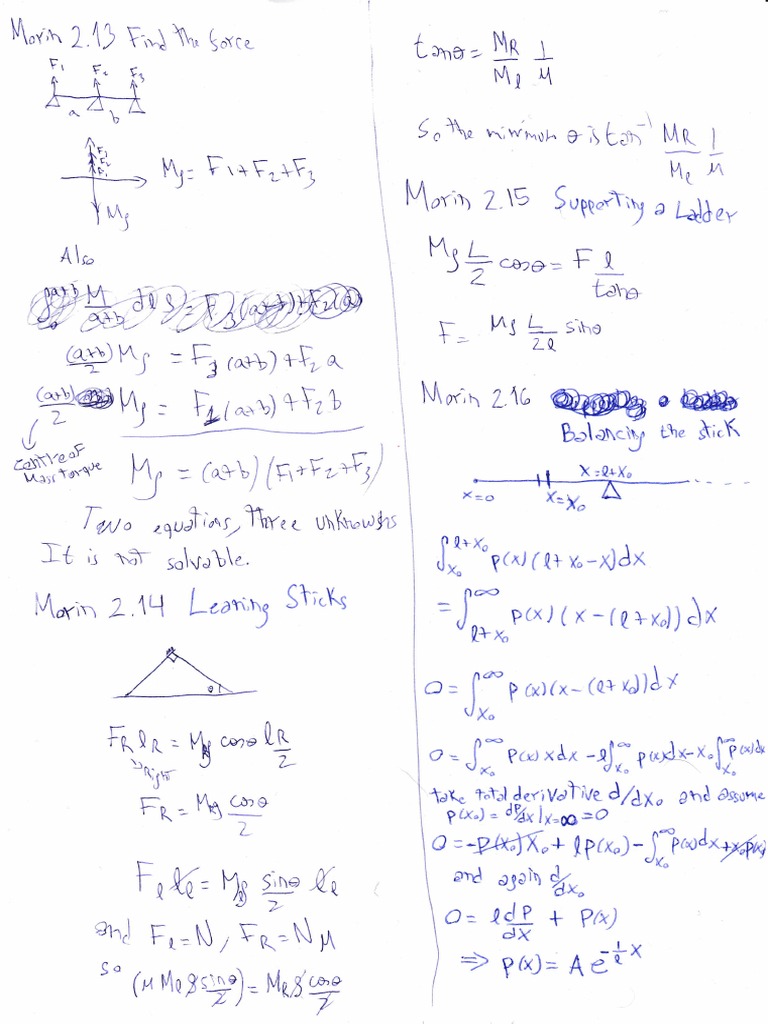 Morin 2.13 Find the force
F₁ F₂ F₃
a b
F₃
F₂
F₁
Mg = F₁+F₂+F₃
Mg
Also
(a+b)/2 Mg = F₃(a+b)+F₂a
(a+b)/2 Mg = F₁(a+b)+F₂b
Centre of
Mass torque
Mg = (a+b)(F₁+F₂+F₃)
Two equations, three unknowns
It is not solvable.
Morin 2.14 Leaning Sticks
θ
F_R l_R = Mg cosθ l_R/2
Right
F_R = Mg cosθ/2
F_l l_l = Mg sinθ/2 l_l
and F_l = N, F_R = Nμ
so (μ M_l g sinθ/2) = M_R g cosθ/2
tanθ = M_R/M_l 1/μ
So the minimum θ is tan⁻¹ M_R/M_l 1/μ
Morin 2.15 Supporting a Ladder
Mg L/2 cosθ = F l/tanθ
F = Mg L/2l sinθ
Morin 2.16
Balancing the stick
x=l+x₀
x=0 x=x₀
∫_{x₀}^{l+x₀} p(x)(l+x₀-x)dx
= ∫_{l+x₀}^∞ p(x)(x-(l+x₀))dx
0 = ∫_{x₀}^∞ p(x)(x-(l+x₀))dx
0 = ∫_{x₀}^∞ p(x)xdx - l∫_{x₀}^∞ p(x)dx - x₀∫_{x₀}^∞ p(x)dx
take total derivative d/dx₀ and assume
p(x₀) = dp/dx|x=∞ = 0
0 = -p(x₀)x₀ + lp(x₀) - ∫_{x₀}^∞ p(x)dx + x₀p(x₀)
and again d/dx₀
0 = l dp/dx + p(x)
⇒ p(x) = A e^{-1/l x}